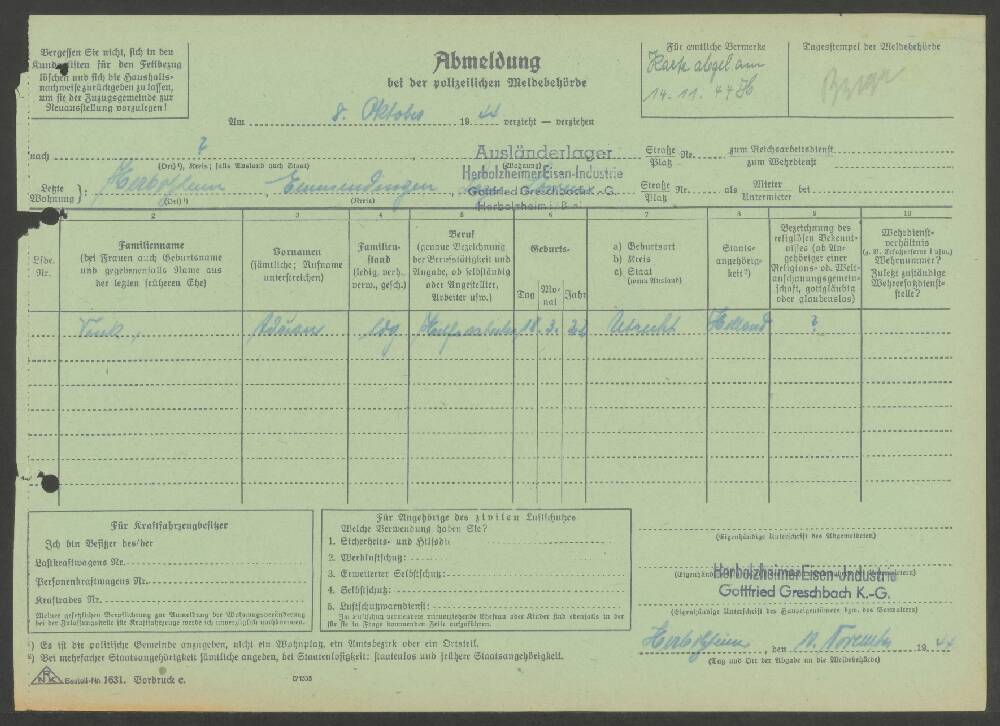 Vergessen Sie nicht, sich in den
Kundenlisten für den Fettbezug
löschen und sich die Haushalts-
nachweise zurückgeben zu lassen,
um sie der Zuzugsgemeinde zur
Neuausstellung vorzulegen!
Abmeldung
bei der polizeilichen Meldebehörde
Für amtliche Vermerke
Karte abgel am
14. 11. 44
Tagesstempel der Meldebehörde
Am 8. Oktober 1944 verzieht — verziehen
nach ?
(Ort¹), Kreis; falls Ausland auch Staat)
(Wohnung)
Ausländerlager
Herbolzheimer Eisen-Industrie
Gottfried Greschbach K.-G.
Herbolzheim i. B
Straße
Platz Nr.
zum Reichsarbeitsdienst
zum Wehrdienst
Letzte
Wohnung }: Herbolzheim Emmendingen
(Ort) ¹) (Kreis)
Straße
Platz Nr. als Mieter
Untermieter bei
1 2 3 4 5 6 7 8 9 10
Lfde.
Nr.
Familienname
(bei Frauen auch Geburtsname
und gegebenenfalls Name aus
der letzten früheren Ehe)
Vornamen
(sämtliche; Rufname
unterstreichen)
Familien-
stand
(ledig, verh.,
verw., gesch.)
Beruf
(genaue Bezeichnung
der Berufstätigkeit und
Angabe, ob selbständig
oder Angestellter,
Arbeiter usw.)
Geburts-
Tag Mo-
nat Jahr
a) Geburtsort
b) Kreis
c) Staat
(wenn Ausland)
Staats-
angehörig-
keit²)
Bezeichnung des
religiösen Bekennt-
nisses (ob An-
gehöriger einer
Religions- od. Welt-
anschauungsgemein-
schaft, gottgläubig
oder glaubenslos)
Wehrdienst-
verhältnis
Wehrnummer?
Zuletzt zuständige
Wehrersatzdienst-
stelle?
ldg Hilfsarbeiter 18. 3. Utrecht Holland ?
Für Kraftfahrzeugbesitzer
Ich bin Besitzer des/der
Lastkraftwagens Nr.
Personenkraftwagens Nr.
Kraftrades Nr.
Meiner gesetzlichen Verpflichtung zur Anmeldung der Wohnungsveränderung
bei der Zulassungsstelle für Kraftfahrzeuge werde ich unverzüglich nachkommen.
Für Angehörige des zivilen Luftschutzes
Welche Verwendung haben Sie?
1. Sicherheits- und Hilfsdienst
2. Werkluftschutz:
3. Erweiterter Selbstschutz:
4. Selbstschutz:
5. Luftschutzwarndienst:
(Eigenhändige Unterschrift des Abgemeldeten)
Herbolzheimer Eisen-Industrie
Gottfried Greschbach K.-G.
(Eigenhändige Unterschrift des Hauseigentümers bzw. des Verwalters)
Herbolzheim, den 11. November 1944
(Tag und Ort der Abgabe an die Meldebehörde)
¹) Es ist die politische Gemeinde anzugeben, nicht ein Wohnplatz, ein Amtsbezirk oder ein Ortsteil.
²) Bei mehrfacher Staatsangehörigkeit sämtliche angeben, bei Staatenlosigkeit: staatenlos und frühere Staatsangehörigkeit.
Bestell-Nr. 1631. Vordruck e.